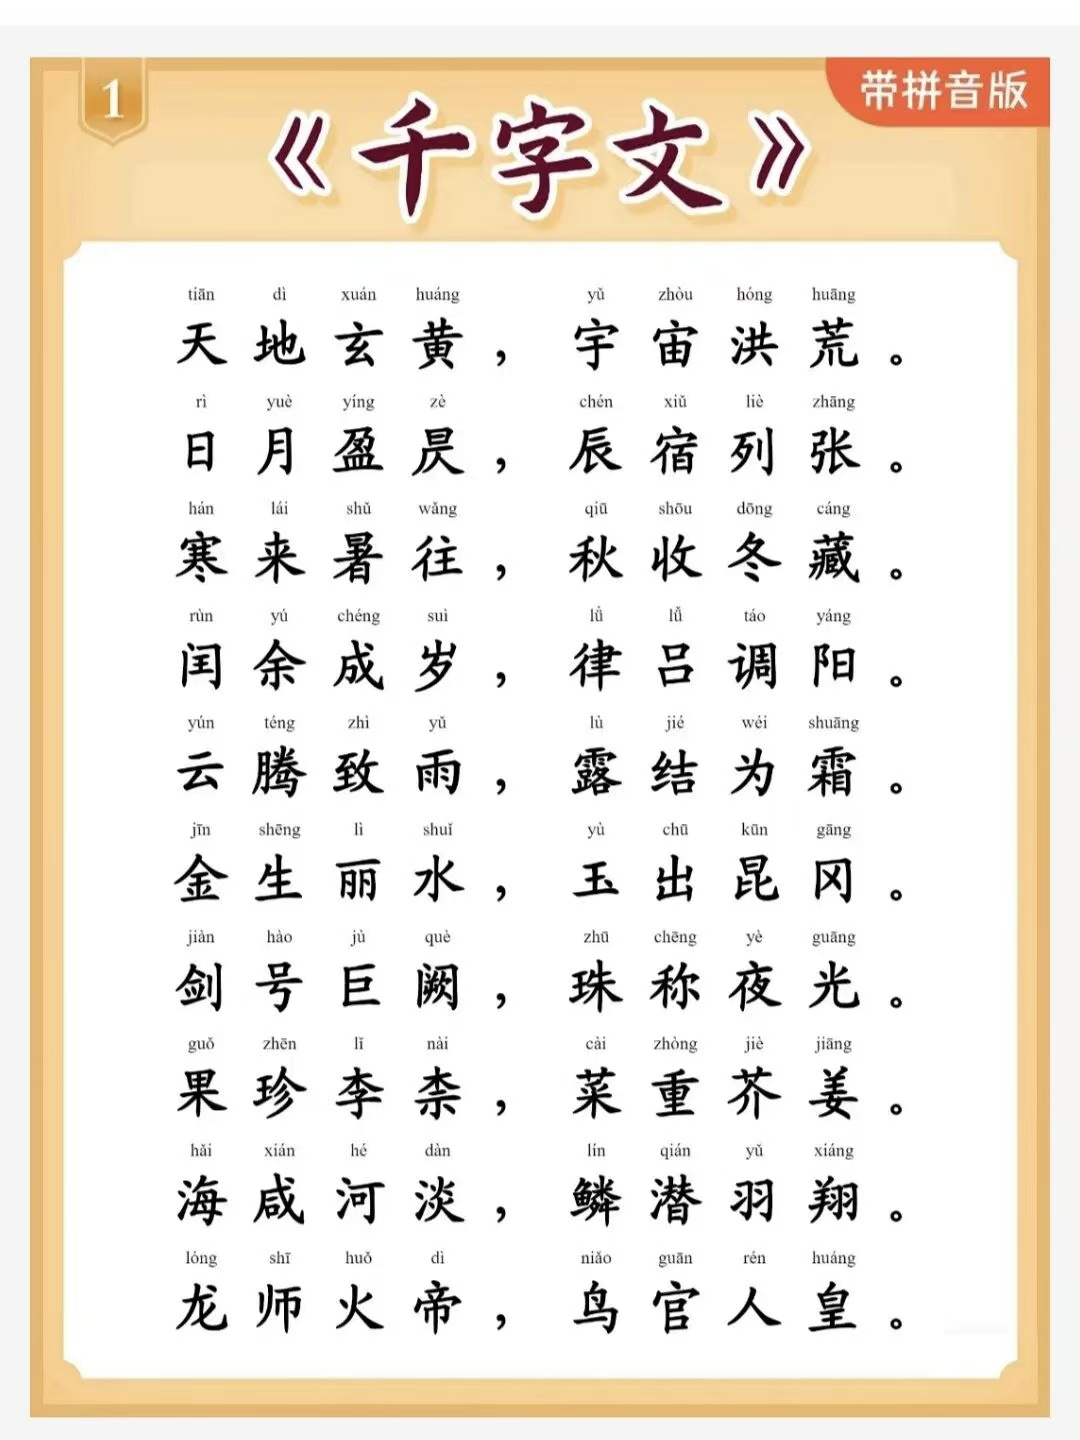 1
带拼音版
《千字文》
tiān dì xuán huáng yǔ zhòu hóng huāng
天地玄黄，宇宙洪荒。
rì yuè yíng zè chén xiǔ liè zhāng
日月盈昃，辰宿列张。
hán lái shǔ wǎng qiū shōu dōng cáng
寒来暑往，秋收冬藏。
rùn yú chéng suì lǜ lǚ táo yáng
闰余成岁，律吕调阳。
yún téng zhì yǔ lù jié wéi shuāng
云腾致雨，露结为霜。
jīn shēng lì shuǐ yù chū kūn gāng
金生丽水，玉出昆冈。
jiàn hào jù què zhū chēng yè guāng
剑号巨阙，珠称夜光。
guǒ zhēn lǐ nài cài zhòng jiè jiāng
果珍李柰，菜重芥姜。
hǎi xián hé dàn lín qián yǔ xiáng
海咸河淡，鳞潜羽翔。
lóng shī huǒ dì niǎo guān rén huáng
龙师火帝，鸟官人皇。